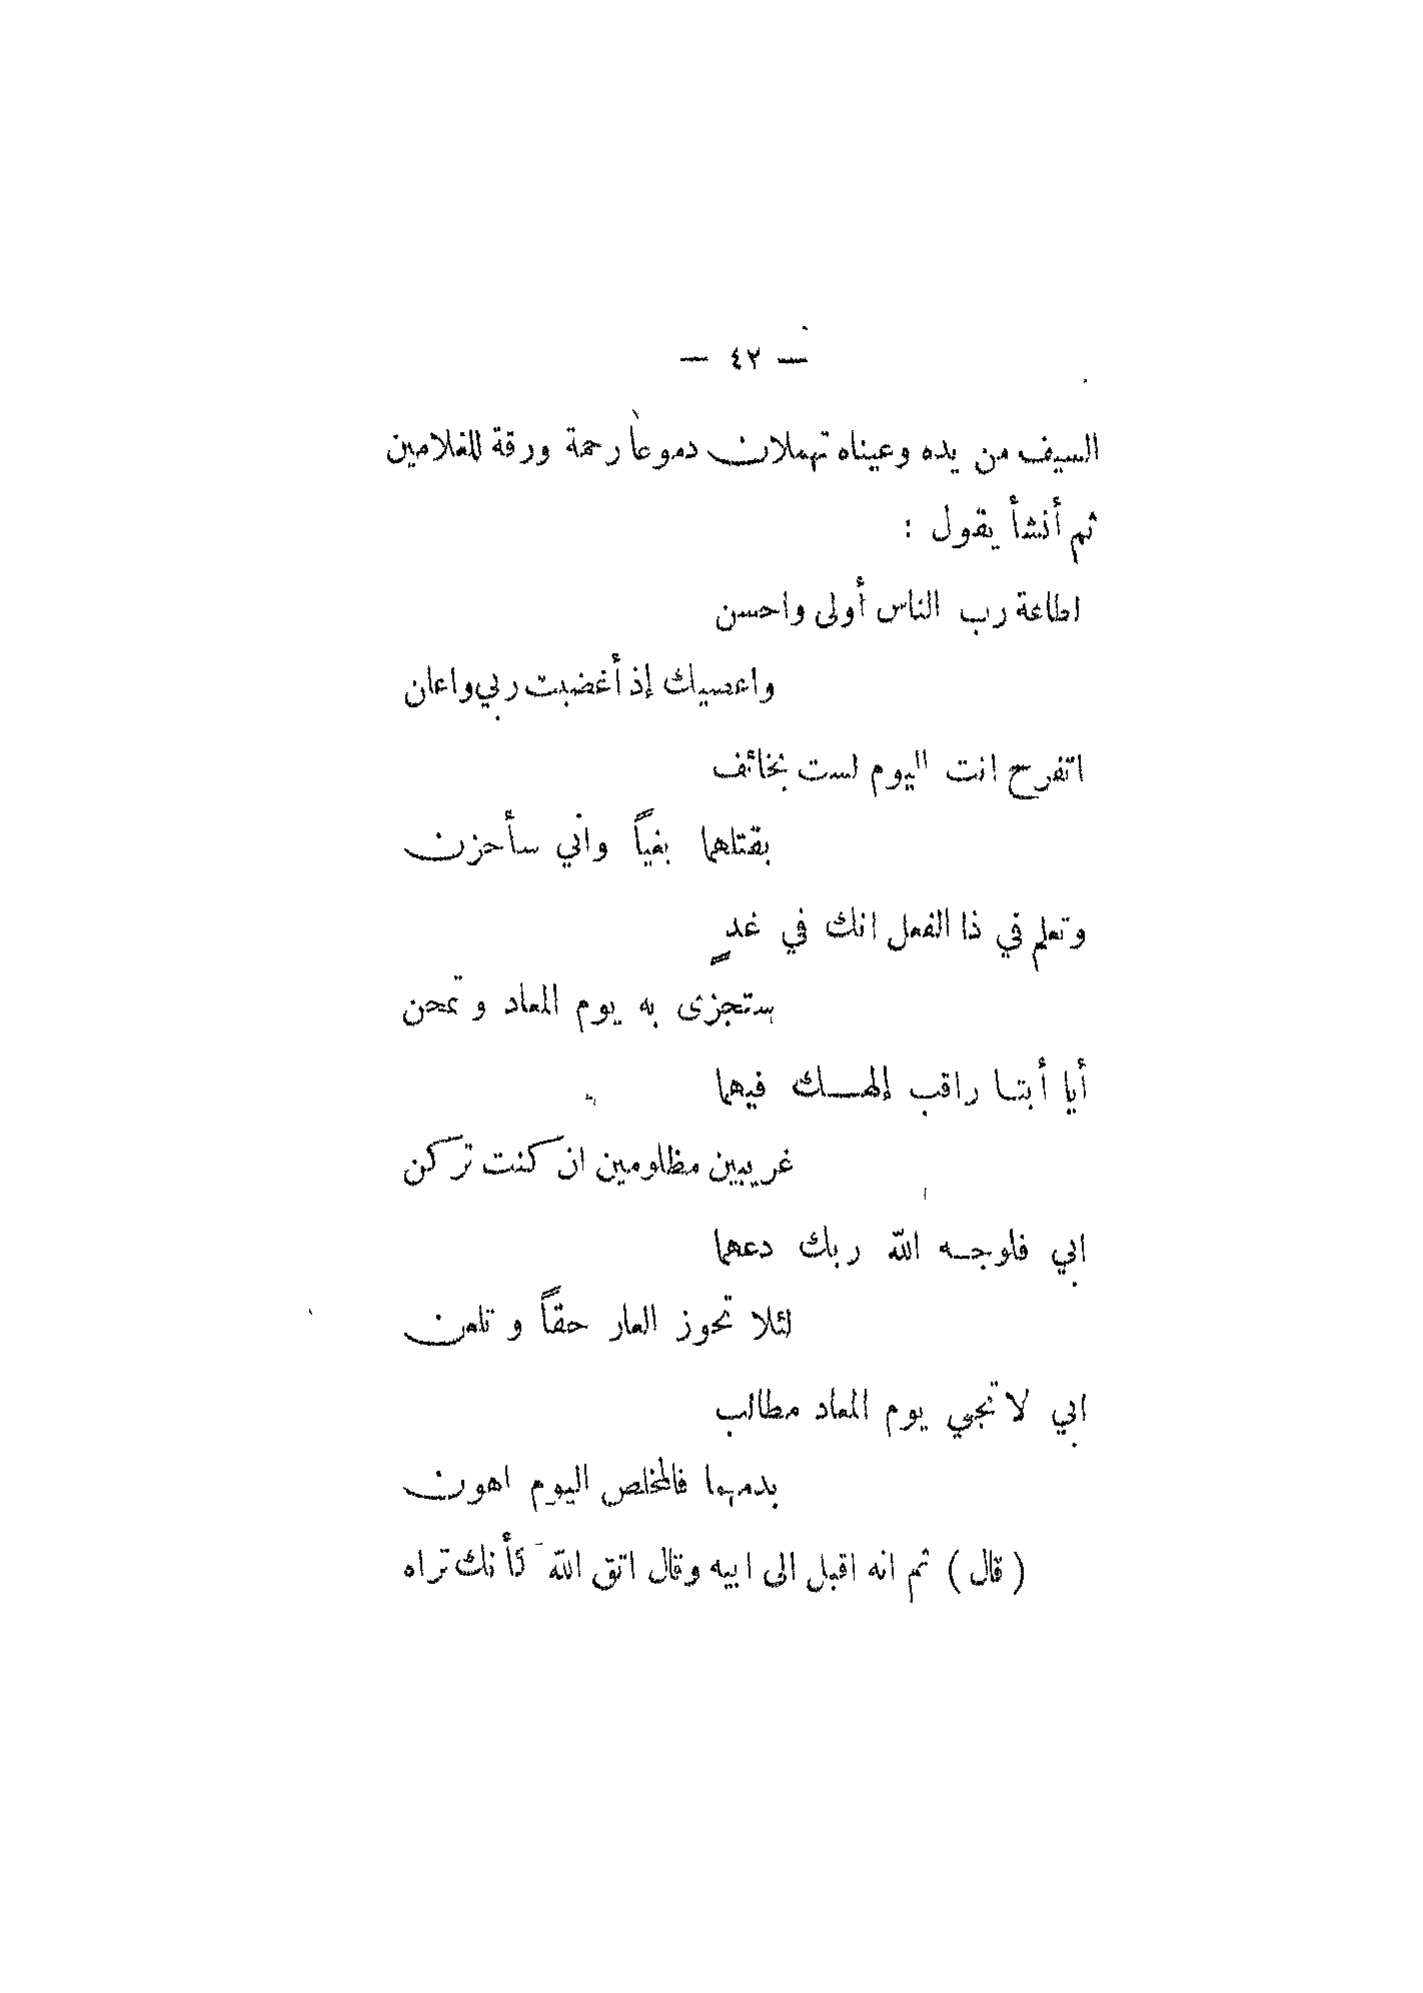 — ٤٢ —
السيف من يده وعيناه تهملان دموعاً رحمة ورقة للغلامين
ثم أنشأ يقول :
اطاعة رب الناس أولى واحسن
واعصيك إذ أغضبت ربي واعلن
اتفرح انت اليوم لست بخائف
بقتلهما بغياً واني سأحزن
وتعلم في ذا الفعل انك في غدٍ
ستجزى به يوم المعاد وتمحن
أيا أبتا راقب إلهك فيهما
غريبين مظلومين ان كنت تركن
ابي فلوجه الله ربك دعهما
لئلا تحوز العار حقاً وتلعن
ابي لا تجي يوم المعاد مطالب
بدمهما فالمخلص اليوم اهون
( قال ) ثم انه اقبل الى ابيه وقال اتق الله كأنك تراه